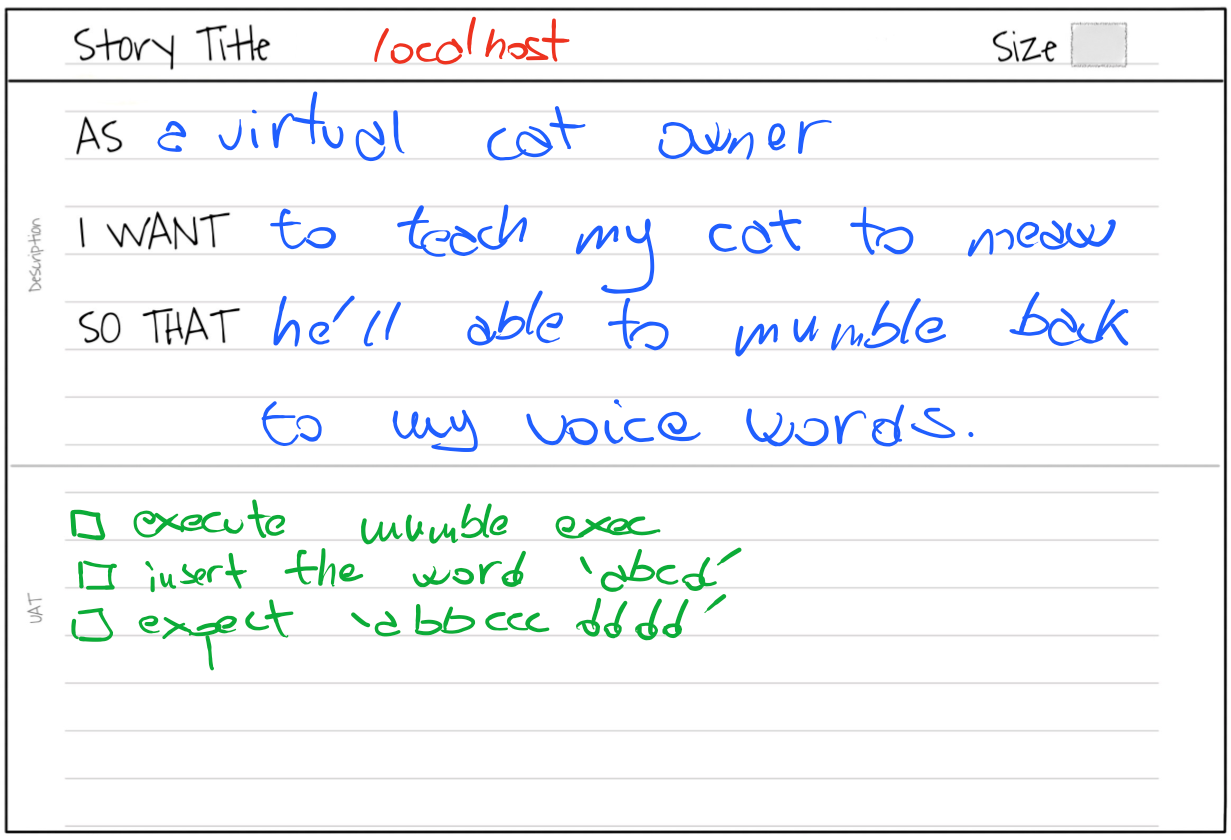 Story Title localhost Size
AS a virtual cat owner
I WANT to teach my cat to meaw
Description
SO THAT he'll able to mumble back
to my voice words.
execute mumble exec
insert the word 'abcd'
UAT
expect 'abbccc dddd'